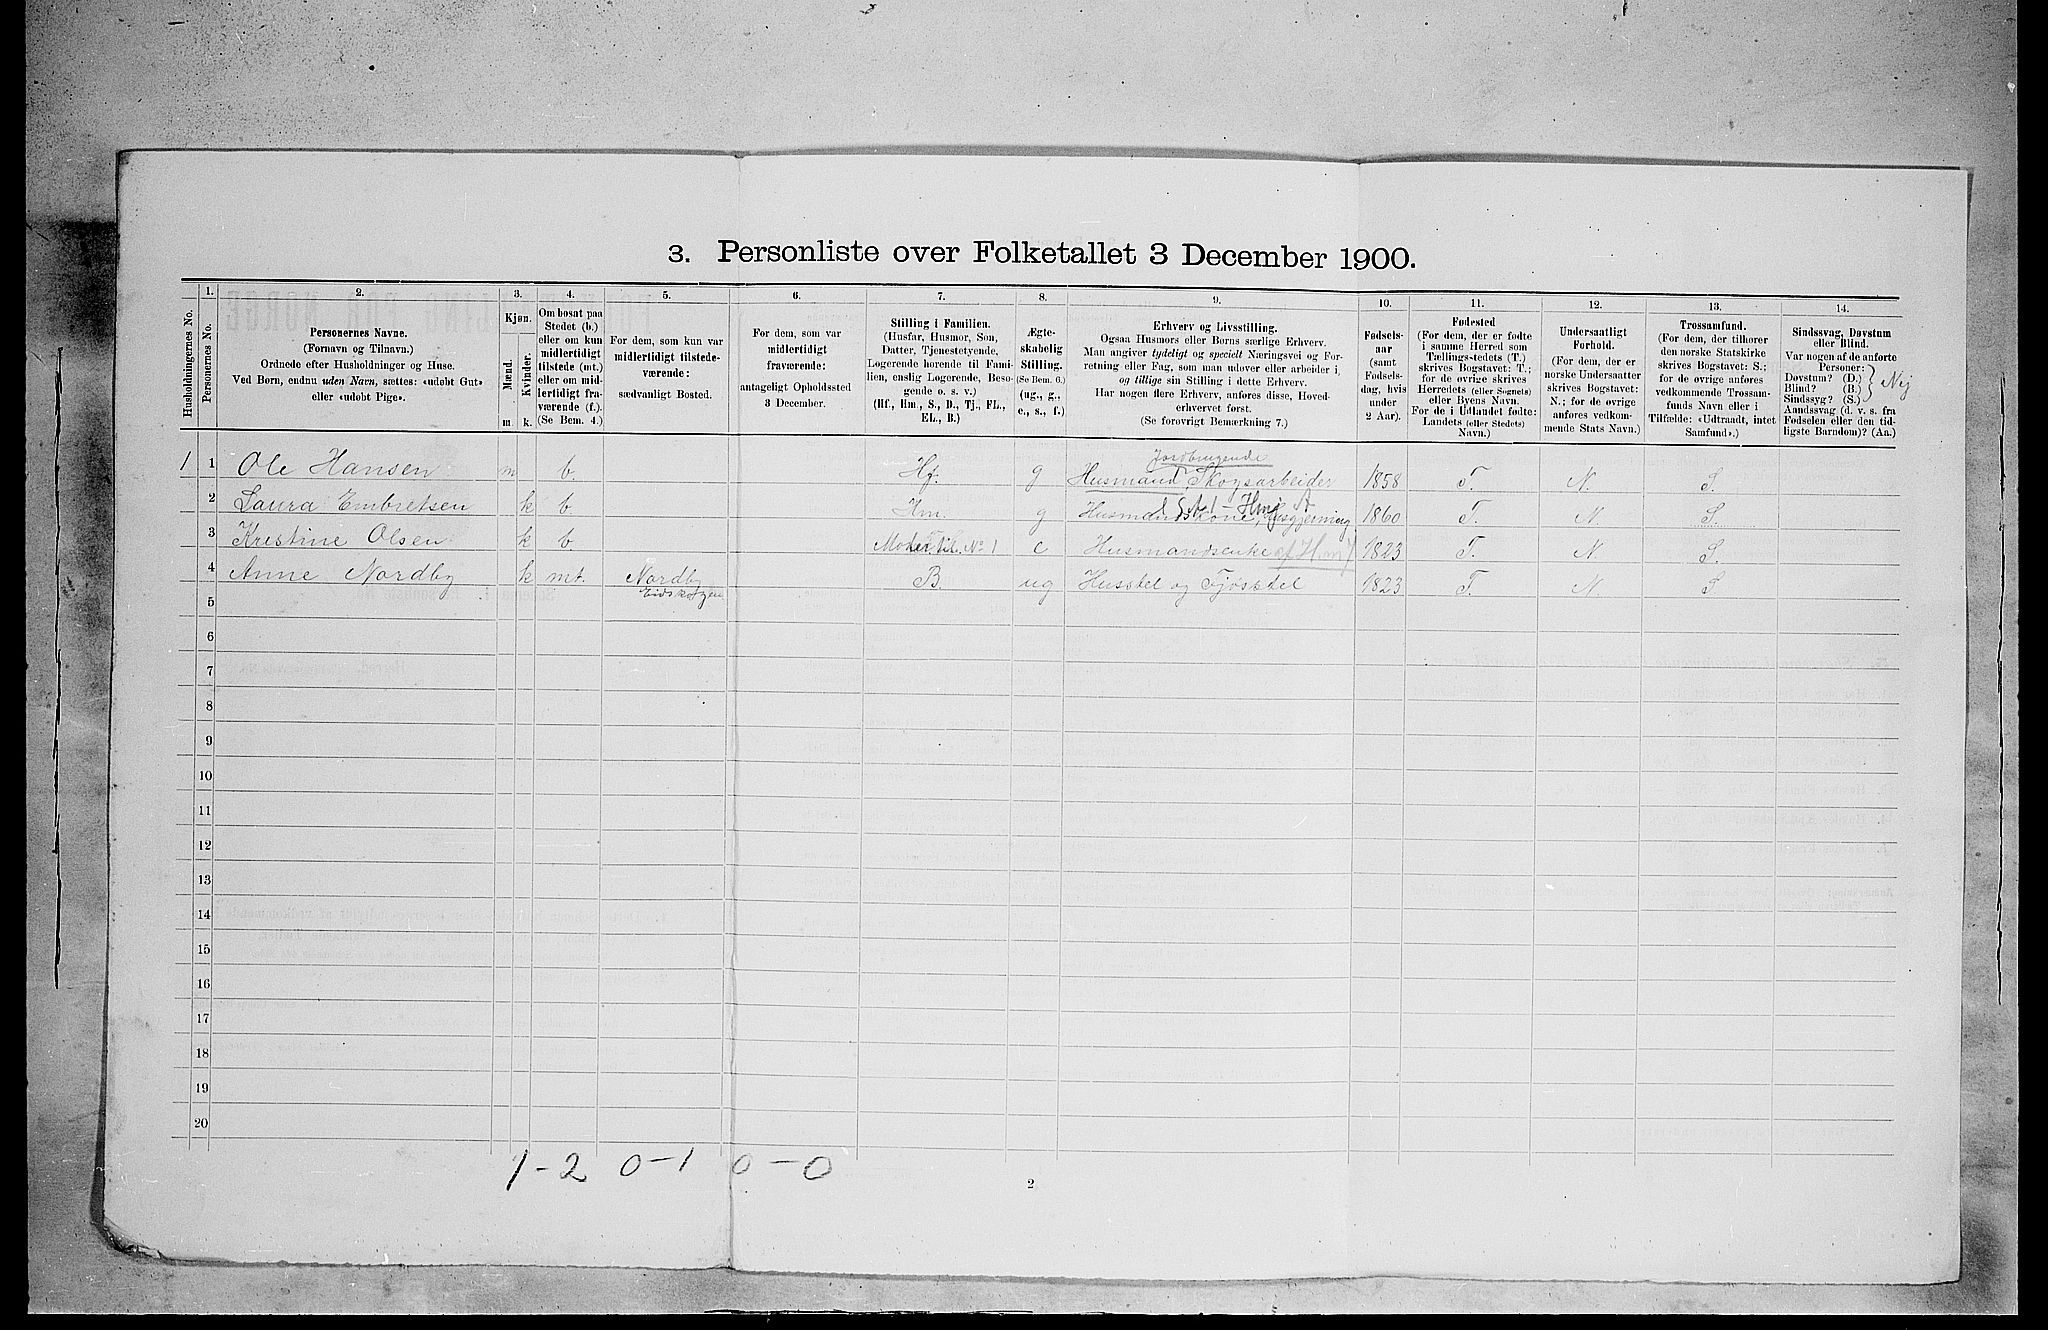 3. Personliste over Folketallet 3 December 1900.
Husholdningernes No.
1.
Personernes No.
2.
Personernes Navne.
(Fornavn og Tilnavn.)
Ordnede efter Husholdninger og Huse.
Ved Børn, endnu uden Navn, sættes: «udøbt Gut»
eller «udøbt Pige».
3.
Kjøn.
Mænd.
Kvinder.
m. k.
4.
Om bosat paa
Stedet (b.)
eller om kun
midlertidigt
tilstede (mt.)
eller om mid-
lertidigt fra-
værende (f.).
(Se Bem. 4.)
5.
For dem, som kun var
midlertidigt tilstede-
værende:
sædvanligt Bosted.
6.
For dem, som var
midlertidigt
fraværende:
antageligt Opholdssted
3 December.
7.
Stilling i Familien.
(Husfar, Husmor, Søn,
Datter, Tjenestetyende,
Logerende hørende til Fami-
lien, enslig Logerende, Besø-
gende o. s. v.)
(Hf., Hm., S., D., Tj., FL.,
EL., B.)
8.
Ægte-
skabelig
Stilling.
(Se Bem. 6.)
(ug., g.,
e., s., f.)
9.
Erhverv og Livsstilling.
Ogsaa Husmors eller Børns særlige Erhverv.
Man angiver tydeligt og specielt Næringsvei og For-
retning eller Fag, som man udøver eller arbeider i,
og tillige sin Stilling i dette Erhverv.
Har nogen flere Erhverv, anføres disse, Hoved-
erhvervet først.
(Se forøvrigt Bemærkning 7.)
10.
Fødsels-
aar
(samt
Fødsels-
dag, hvis
under
2 Aar).
11.
Fødested
(For dem, der er fødte
i samme Herred som
Tællings-stedets (T.)
skrives Bogstavet: T.;
for de øvrige skrives
Herredets (eller Sognets)
eller Byens Navn.
For de i Udlandet fødte:
Landets (eller Stedets)
Navn.)
12.
Undersaatligt
Forhold.
(For dem, der er
norske Undersaatter
skrives Bogstavet:
N.; for de øvrige
anføres vedkom-
mende Stats Navn.)
13.
Trossamfund.
(For dem, der tilhører
den norske Statskirke
skrives Bogstavet: S.;
for de øvrige anføres
vedkommende Trossam-
funds Navn eller i
Tilfælde: «Udtraadt, intet
Samfund».)
14.
Sindssvag, Døvstum
eller Blind.
Var nogen af de anførte
Personer:
Døvstum? (D.)
Blind? (B.)
Sindssyg? (S.)
Aandssvag (d. v. s. fra
Fødselen eller den tid-
ligste Barndom)? (Aa.)
Nej
Jordbrugende
1 1 Ole Hansen m b. Hf. g Husmand, Skogsarbeider 1858 T. N. S.
2 Laura Embretsen k b. Hm. g Husmandskone, Husgjerning 1860 T. N. S.
3 Kristine Olsen k b. Moder til No 1 e Husmandsenke 1823 T. N. S.
4 Anne Nordby k mt. Nordby B. ug Husstel og Fjøsstel 1823 T. N. S.
Eidskogen
5
6
7
8
9
10
11
12
13
14
15
16
17
18
19
20
1-2 0-1 0-0
2